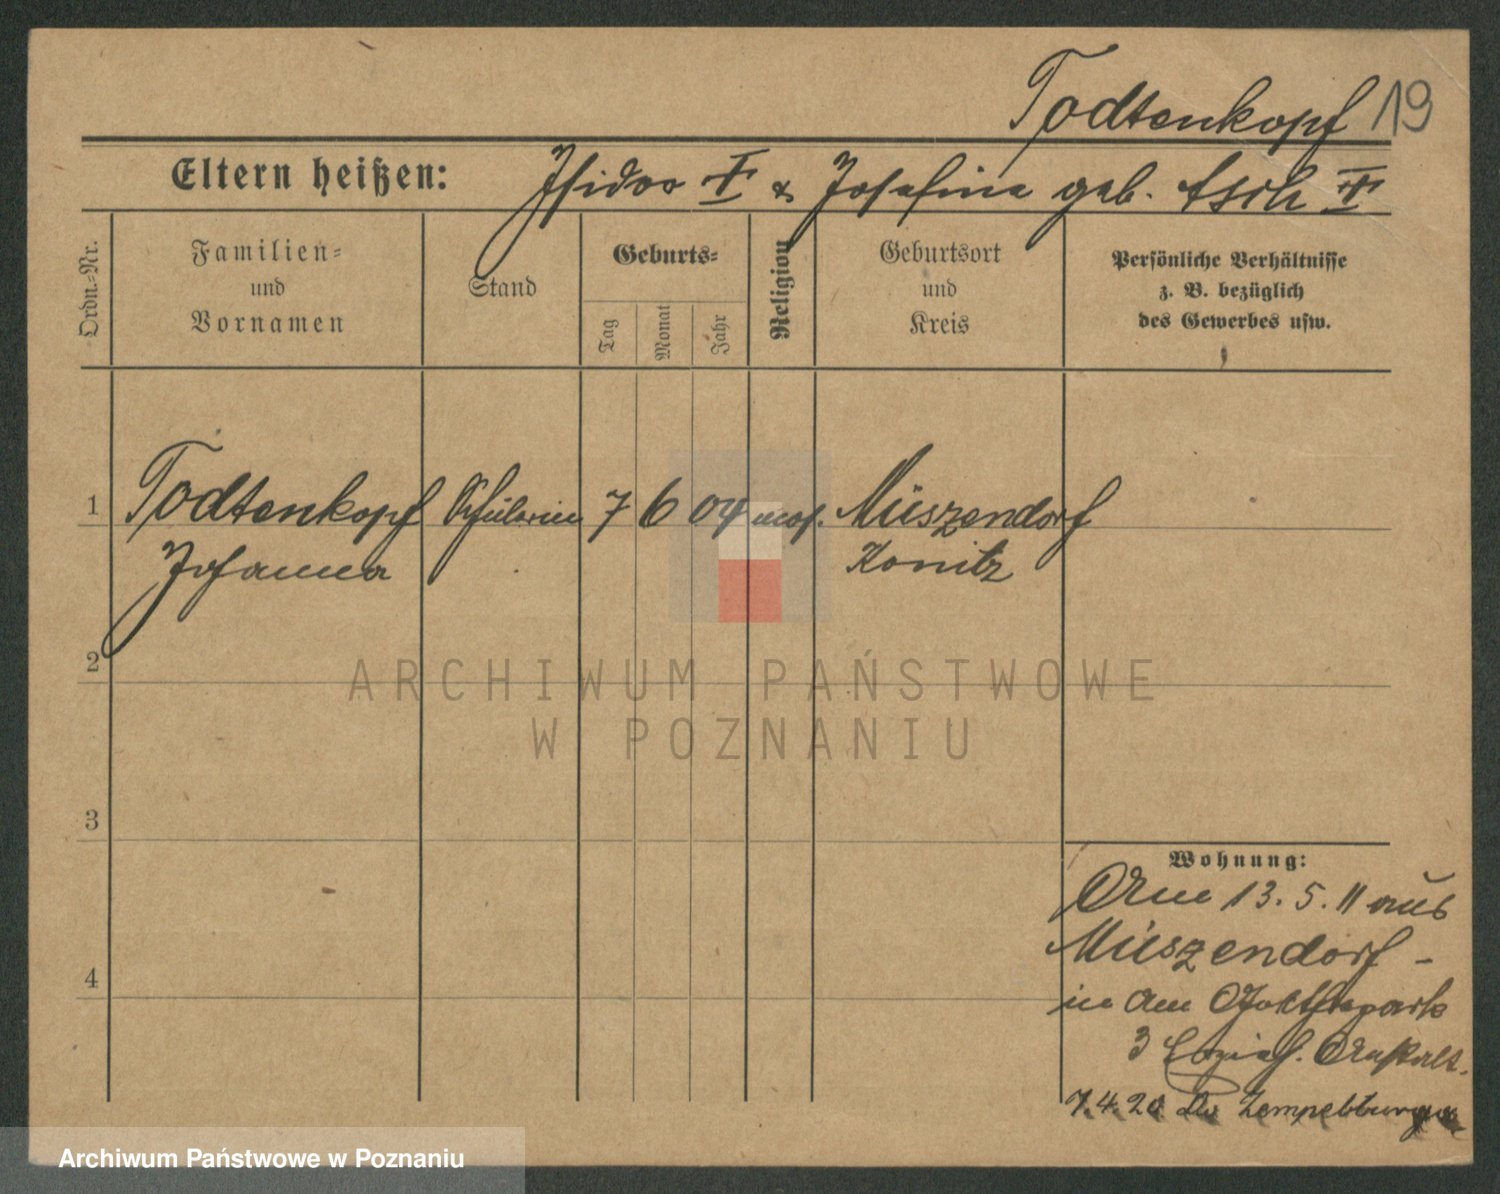 Todtenkopf 19
Eltern heißen: Isidor & Josefine geb. Asch
Ordn.-Nr.
Familien-
und
Vornamen
Stand
Geburts-
Tag
Monat
Jahr
Religion
Geburtsort
und
Kreis
Persönliche Verhältnisse
z. B. bezüglich
des Gewerbes usw.
1 Todtenkopf Schülerin 7 6 04 mos. Müszendorf
Johanna Konitz
2
ARCHIWUM PAŃSTWOWE
W POZNANIU
3
Wohnung:
Am 13. 5. 11 aus
Müszendorf -
4
in Am Goethepark
3 Erzieh. Anstalt.
7.4.20 Zempelburg
Archiwum Państwowe w Poznaniu